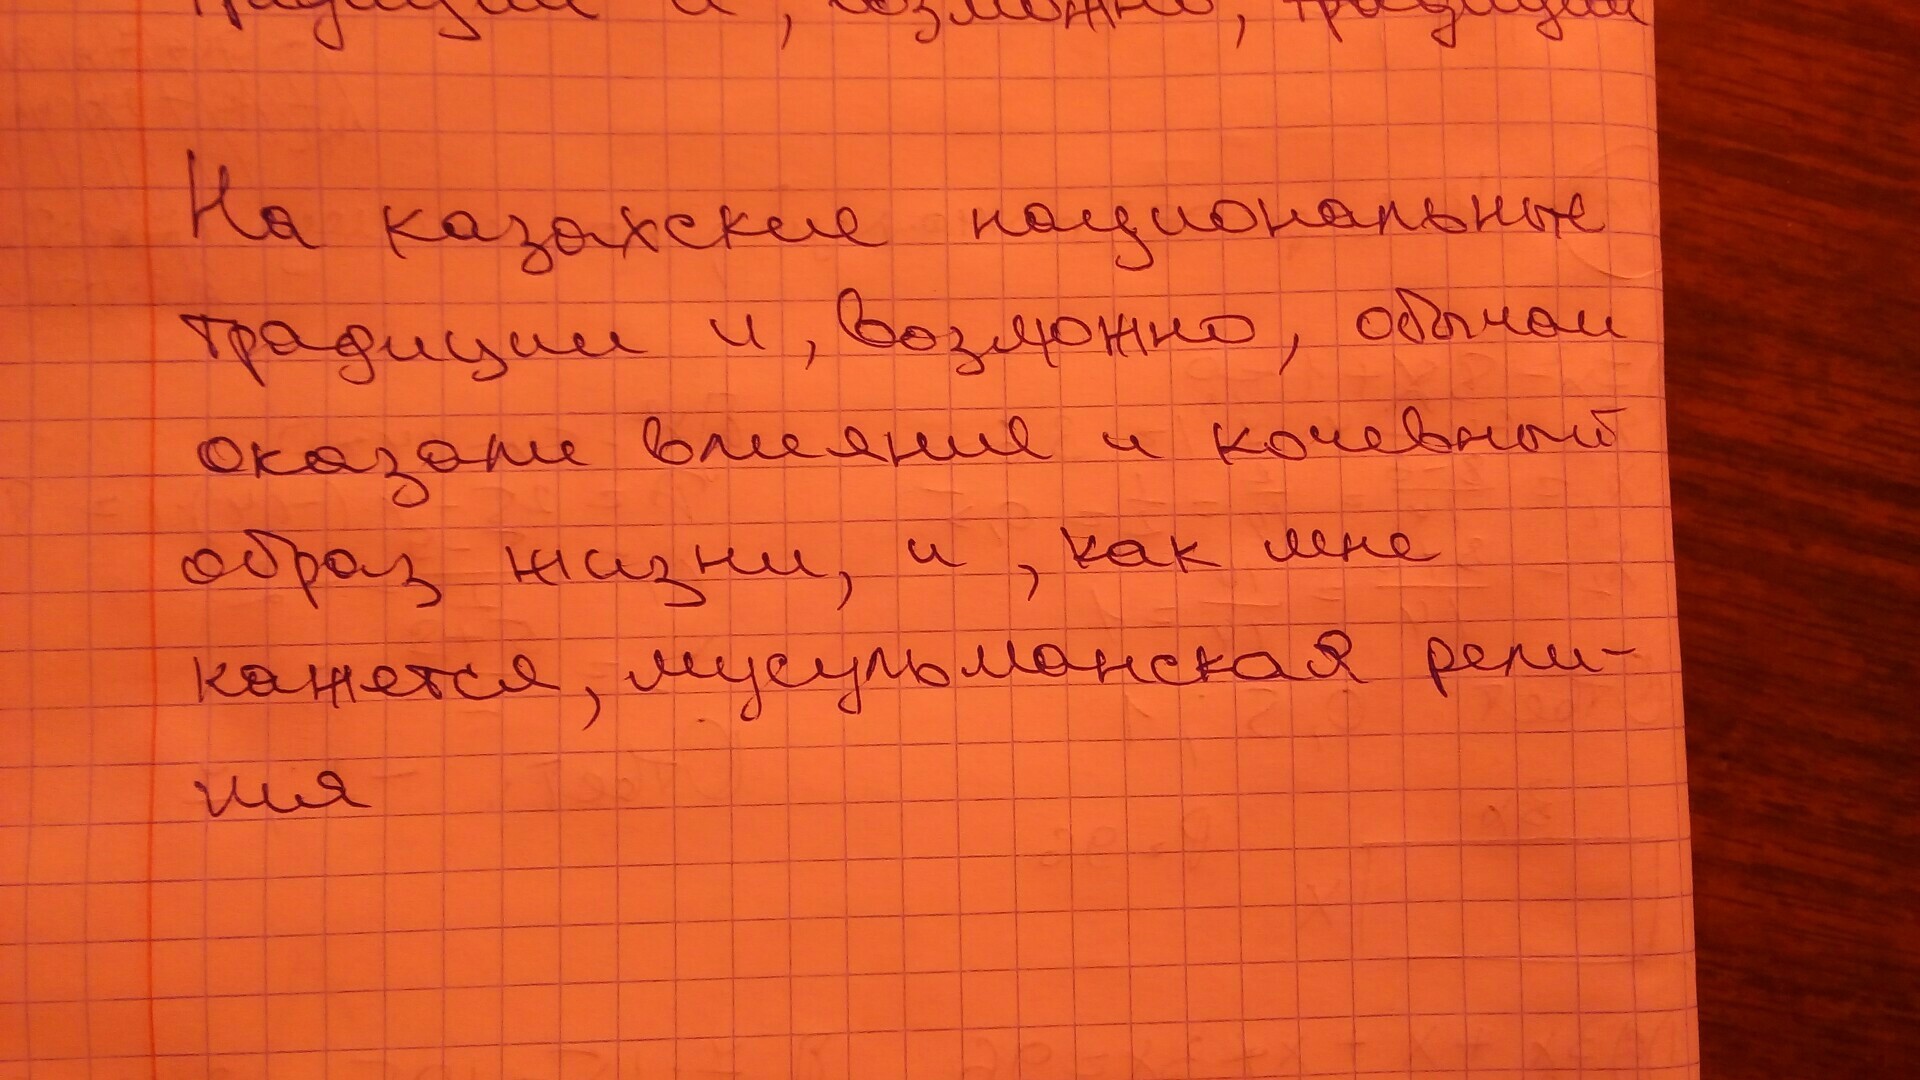 традиции и, возможно, традиции
На казахские национальные
традиции и, возможно, обычаи
оказали влияние и кочевный
образ жизни, и, как мне
кажется, мусульманская рели-
гия